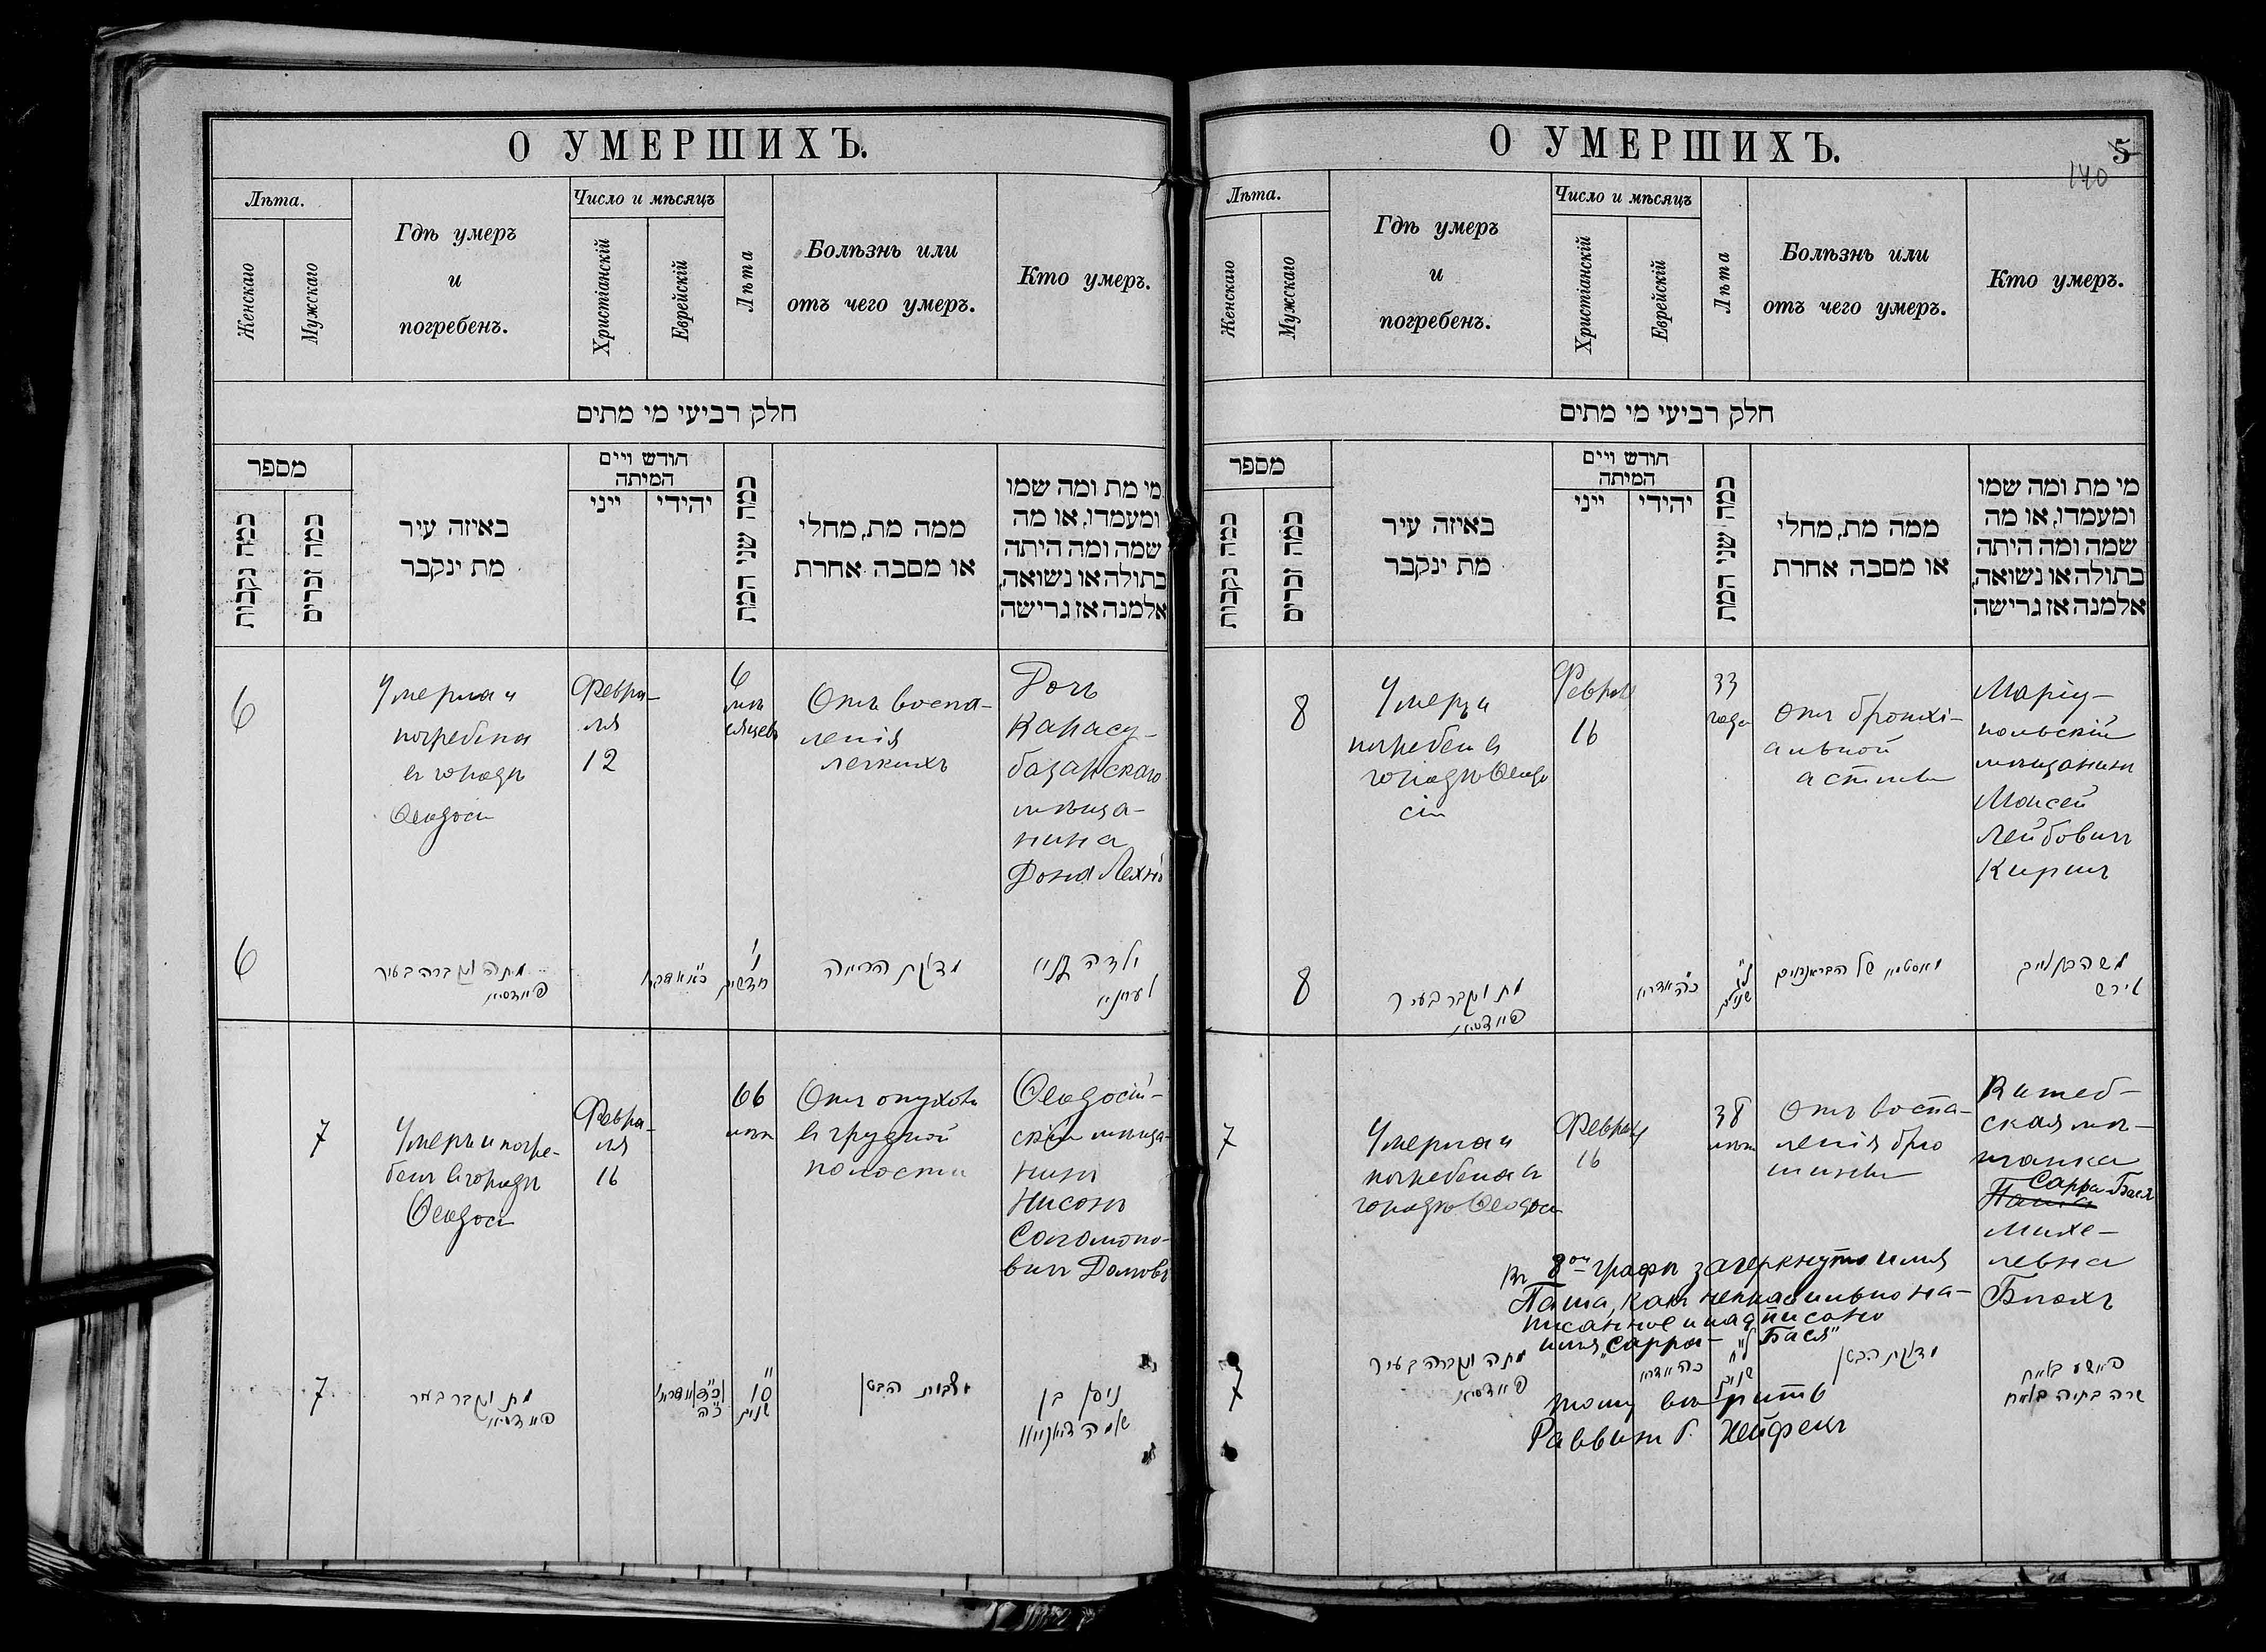 О УМЕРШИХЪ.
Лѣта.
Женскаго
Мужскаго
Гдѣ умеръ
и
погребенъ.
Число и мѣсяцъ
Христіанскій
Еврейскій
Лѣта
Болѣзнь или
отъ чего умеръ.
Кто умеръ.
חלק רביעי מי מתים
מספר
כמה נקבות
כמה זכרים
באיזה עיר
מת ינקבר
חודש ויים
המיתה
ייני
יהידי
כמה שני המת
ממה מת, מחלי
או מסבה אחרת
מי מת ומה שמו
ומעמדו, או מה
שמה ומה היתה
בתולה או נשואה,
אלמנה אז גרישה
6
Умерла и
погребена
въ городѣ
Ѳеодосіи
Февра-
ля
12
6
мѣ
сяцевъ
Отъ воспа-
ленія
легкихъ
Дочь
Карасу-
базарскаго
мѣща-
нина
6
מתה ונקברה בעיר
פיודסיא
חדשים
7
Умеръ и погре-
бенъ въ городѣ
Ѳеодосіи
Февра-
ля
16
66
лѣтъ
Отъ опухоли
въ грудной
полости
Ѳеодосій-
скій мѣща-
нинъ
Нисонъ
Соломоно-
вичъ
7
מת ונקבר בעיר
פיודסיא
שנים
ניסן בן
שלמה
О УМЕРШИХЪ.
5
140
Лѣта.
Женскаго
Мужскаго
Гдѣ умеръ
и
погребенъ.
Число и мѣсяцъ
Христіанскій
Еврейскій
Лѣта
Болѣзнь или
отъ чего умеръ.
Кто умеръ.
חלק רביעי מי מתים
מספר
כמה נקבות
כמה זכרים
באיזה עיר
מת ינקבר
חודש ויים
המיתה
ייני
יהידי
כמה שני המת
ממה מת, מחלי
או מסבה אחרת
מי מת ומה שמו
ומעמדו, או מה
שמה ומה היתה
בתולה או נשואה,
אלמנה אז גרישה
8
Умеръ и
погребенъ въ
городѣ Ѳеодо
сіи
Февраля
16
33
года
Отъ бронхі-
альной
астмы
Маріу-
польскій
мѣщанинъ
Моисей
Лейбовичъ
Киршъ
8
מת ונקבר בעיר
פיודסיא
שנים
קירש
7
Умерла и
погребена въ
городѣ Ѳеодосіи
Февраля
16
38
лѣтъ
Отъ воспа-
ленія брю
шины
Витеб-
ская мѣ-
щанка
Сарра-Бася
Паша
Михе-
левна
Блохъ
Въ 8ой графѣ зачеркнуто имя
Паша, какъ неправильно на-
писанное и надписано
имя „Сарра-Бася"
7
מתה ונקברה בעיר
פיודסיא
שנים
דלקת הבטן
שרה בתיה בלאח
тому вѣрить
Раввинъ Г. Нейфехъ